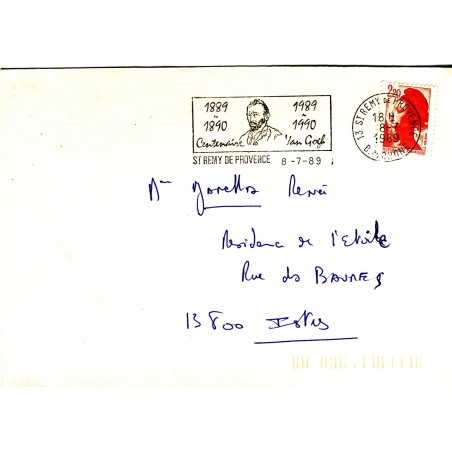 1889 1989
à à
1890 1990
Centenaire Van Gogh
ST REMY DE PROVENCE 8-7-89
2,20
13 ST REMY DE PROVENCE
18 H
8-7
1989
B. DU RHONE
Résidence de l'Etoile
Rue des
13800 Istres